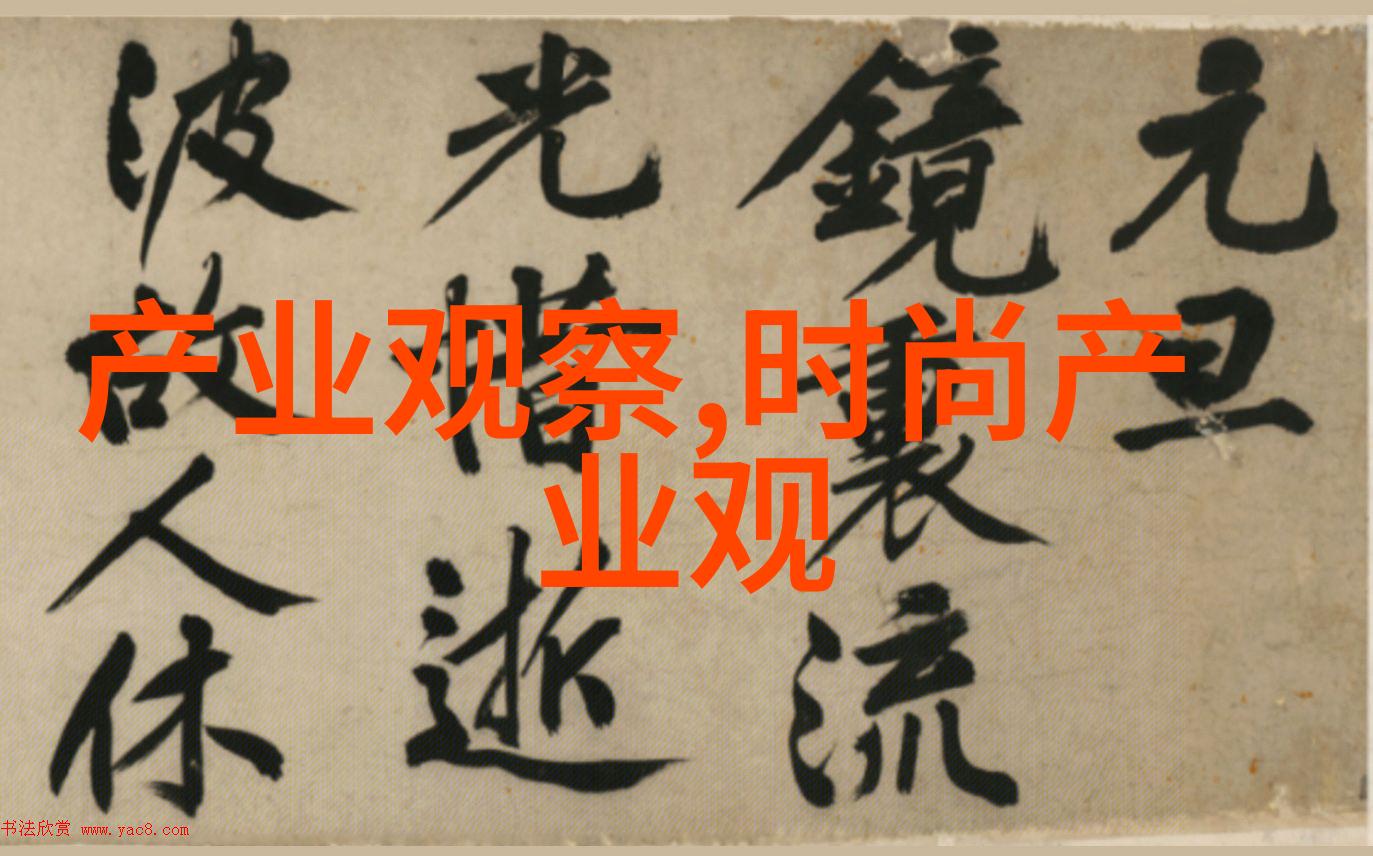 元旦
鏡裏流
光惜逝
波故人休
产业观察,时尚产
业观
书法欣赏 www.yac8.com